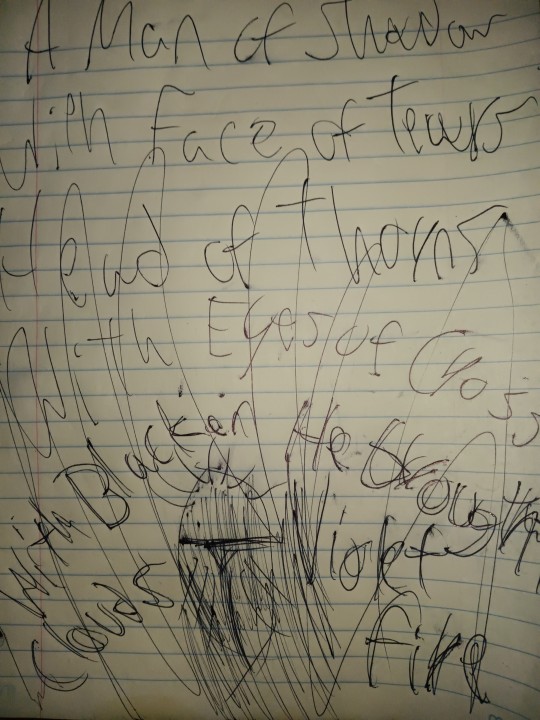 A Man of Shadow
with Face of Tears
Head of Thorns
With Eyes of Cross
With Blacken
Clouds He Brought
Violet
Fire